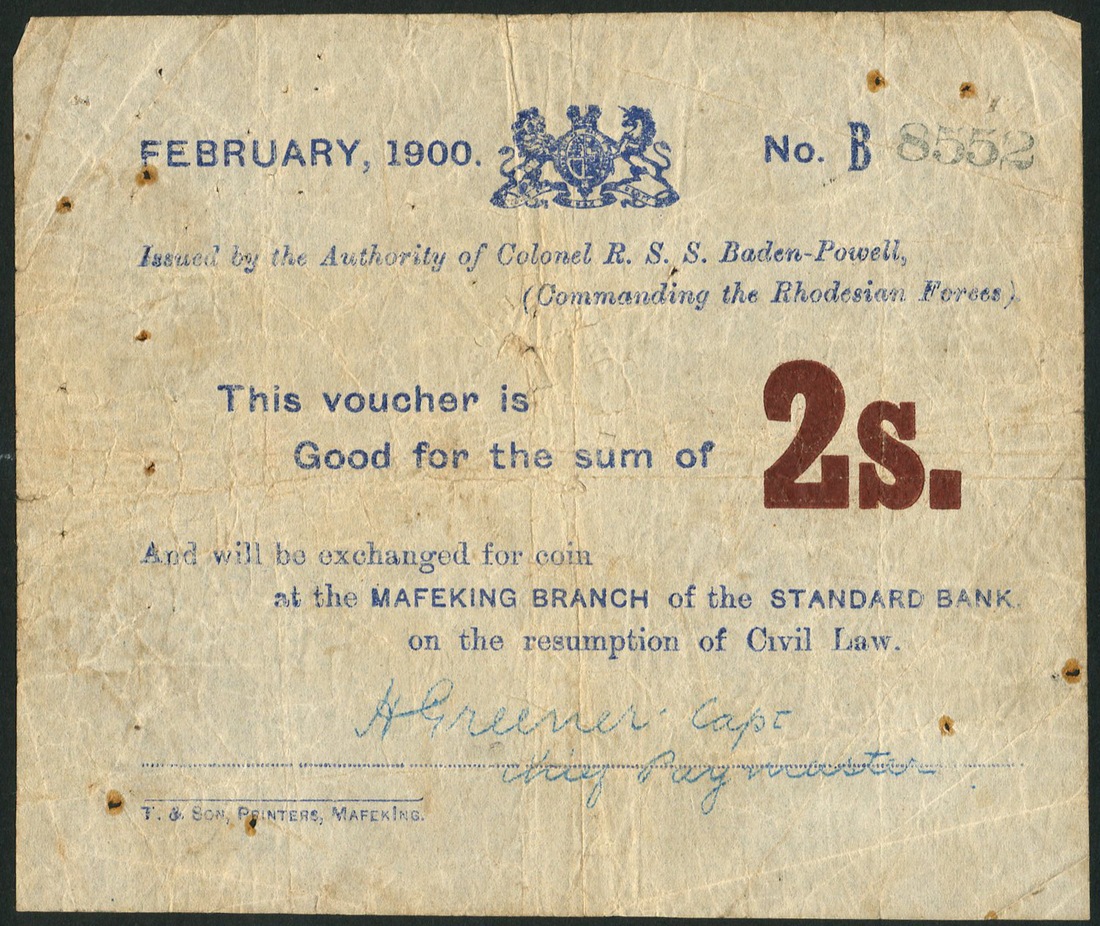 FEBRUARY, 1900. No. B 8552
Issued by the Authority of Colonel R. S. S. Baden-Powell,
(Commanding the Rhodesian Forces).
This voucher is
Good for the sum of 2s.
And will be exchanged for coin
at the MAFEKING BRANCH of the STANDARD BANK
on the resumption of Civil Law.
H Greener Capt
Chief Paymaster
T. & SON, PRINTERS, MAFEKING.